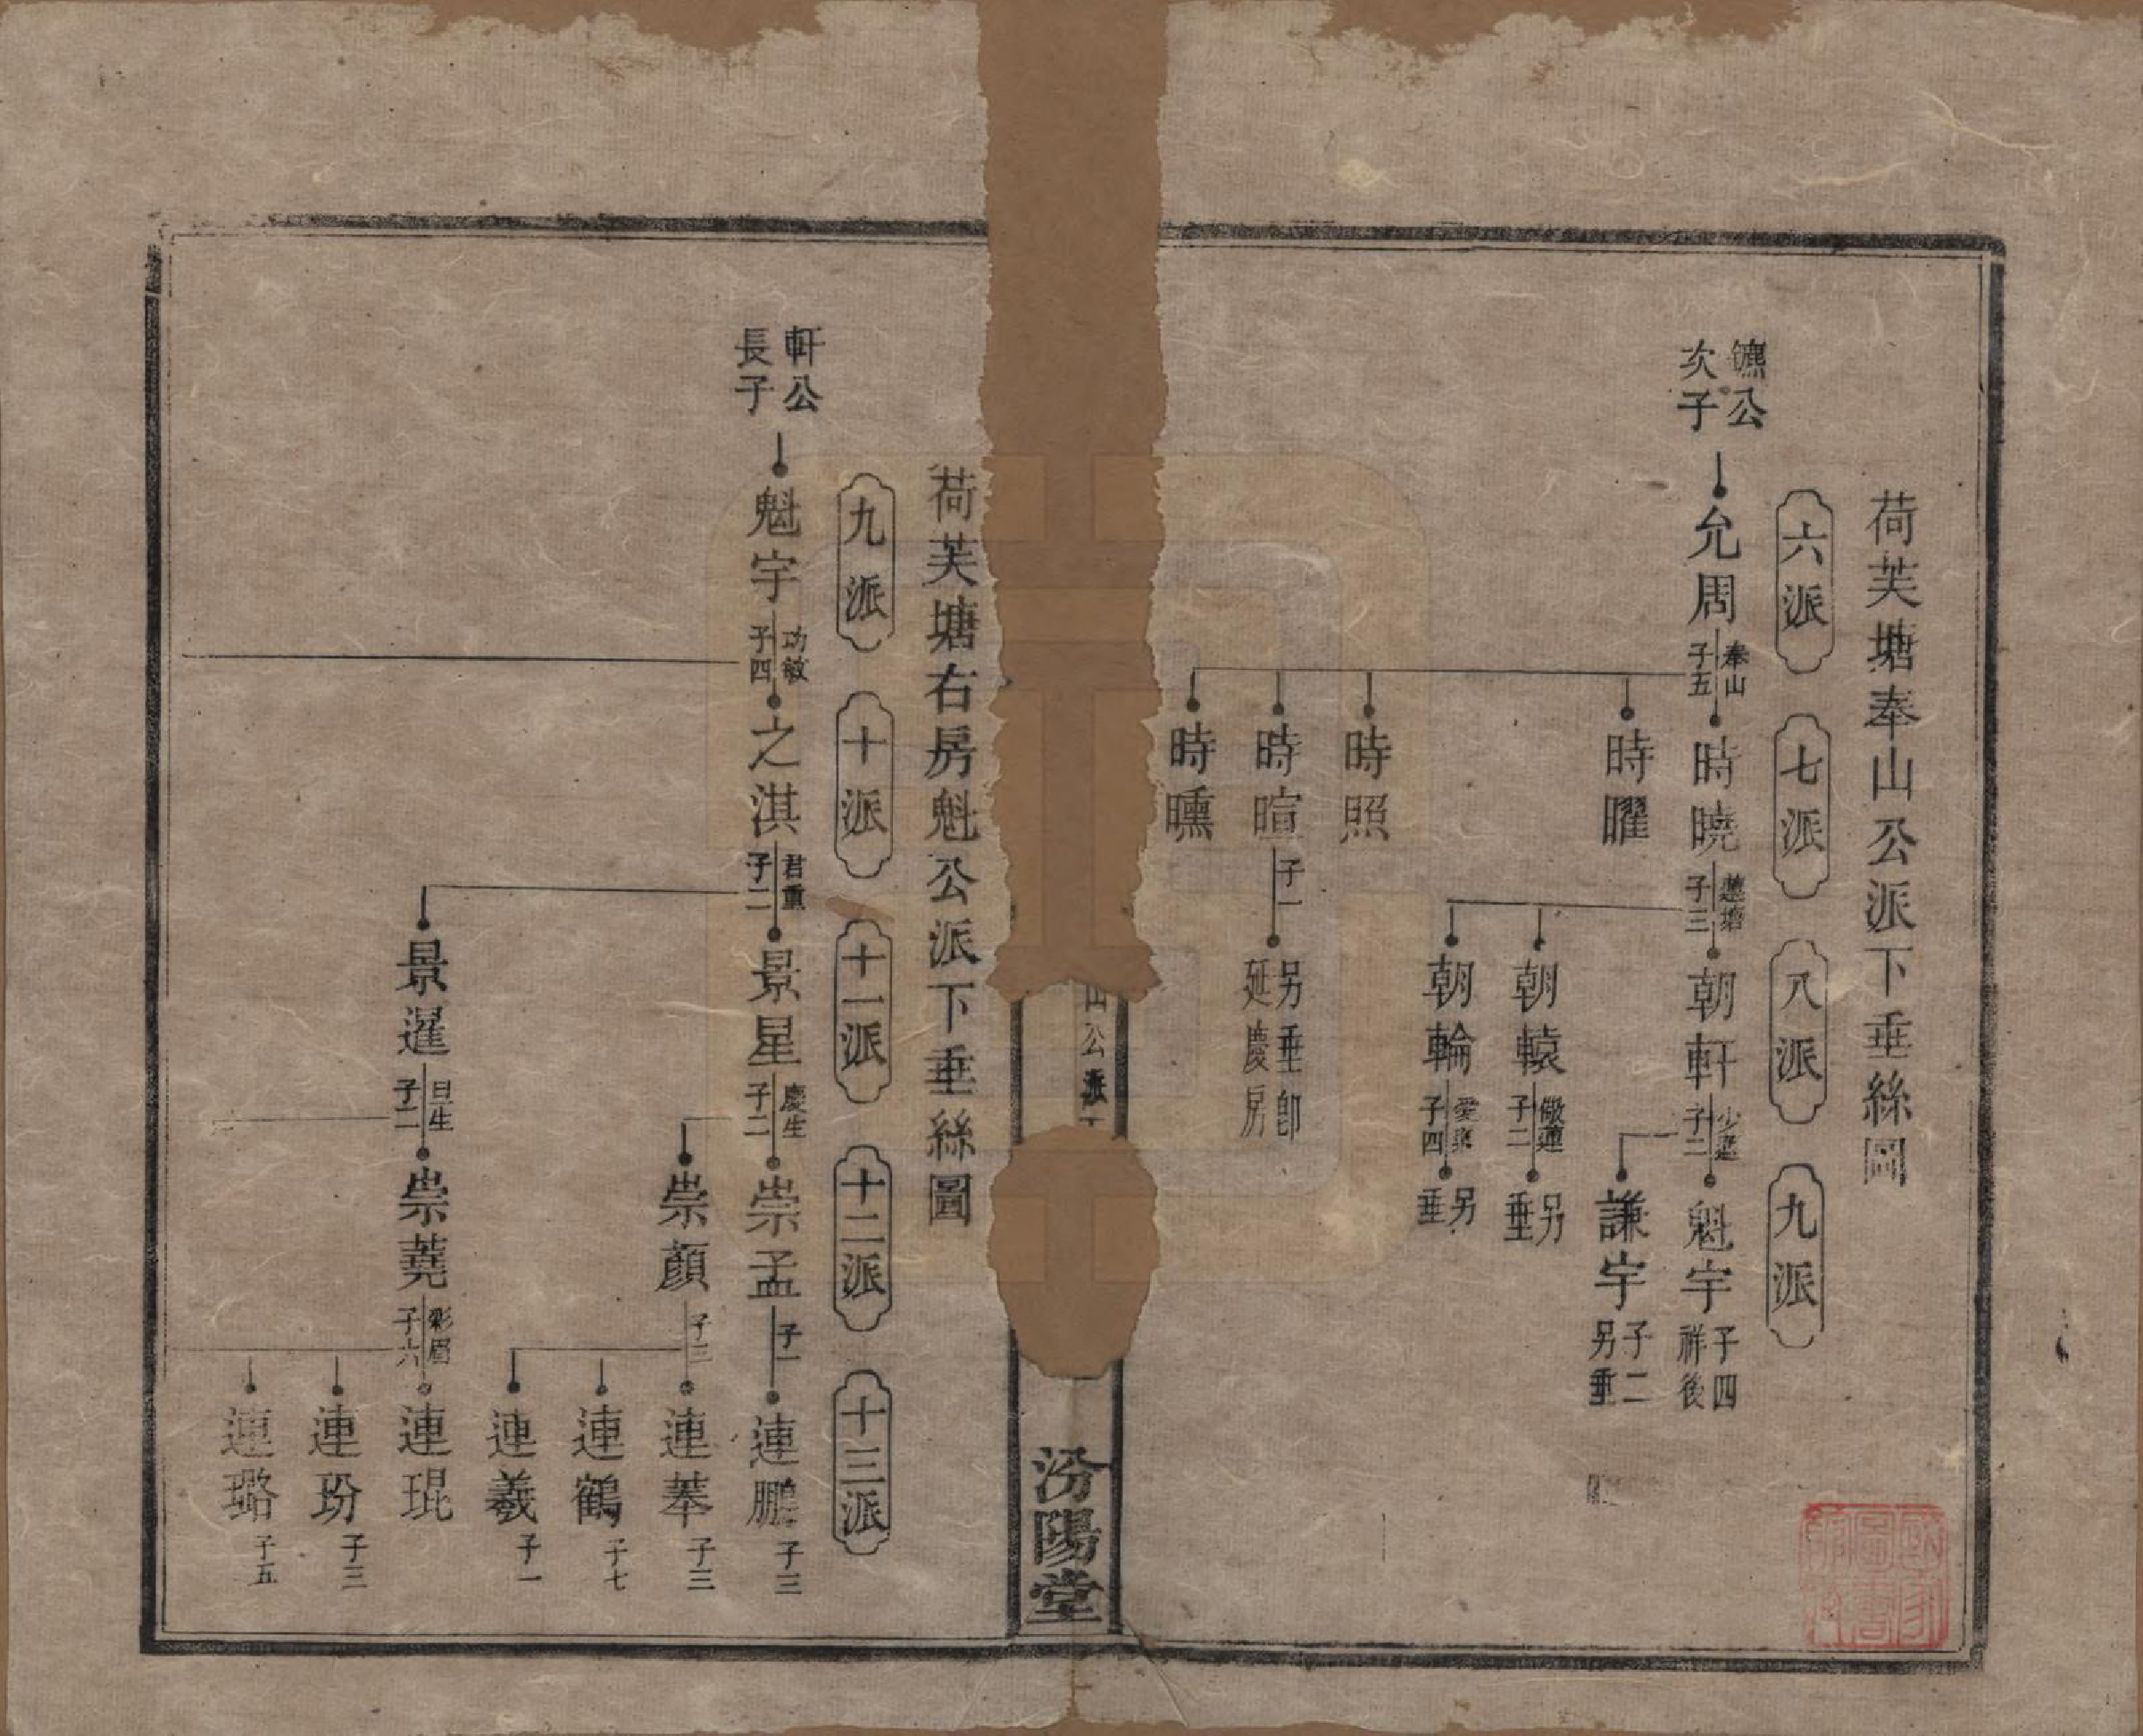 荷芙塘奉山公派下垂絲圖
六派
七派
八派
九派
鑣公
次子
允周
奉山
子五
時曉
蓮塘
子三
朝軒
子二
魁宇
子四
祥後
謙宇
子二
另垂
時曜
朝轅
儆蓮
子二
另垂
朝輪
愛泉
子四
另垂
時照
時暄
子一
另垂卽
延慶房
時曛
山公派下
汾陽堂
荷芙塘右房魁公派下垂絲圖
九派
十派
十一派
十二派
十三派
軒公
長子
魁宇
功敏
子四
之淇
君重
子二
景星
慶生
子二
崇孟
子一
連鵬
子三
崇顏
子三
連搴
子三
連鶴
子七
連羲
子一
景暹
旦生
子二
崇蕘
彩眉
子六
連琨
連玢
子三
連璐
子五